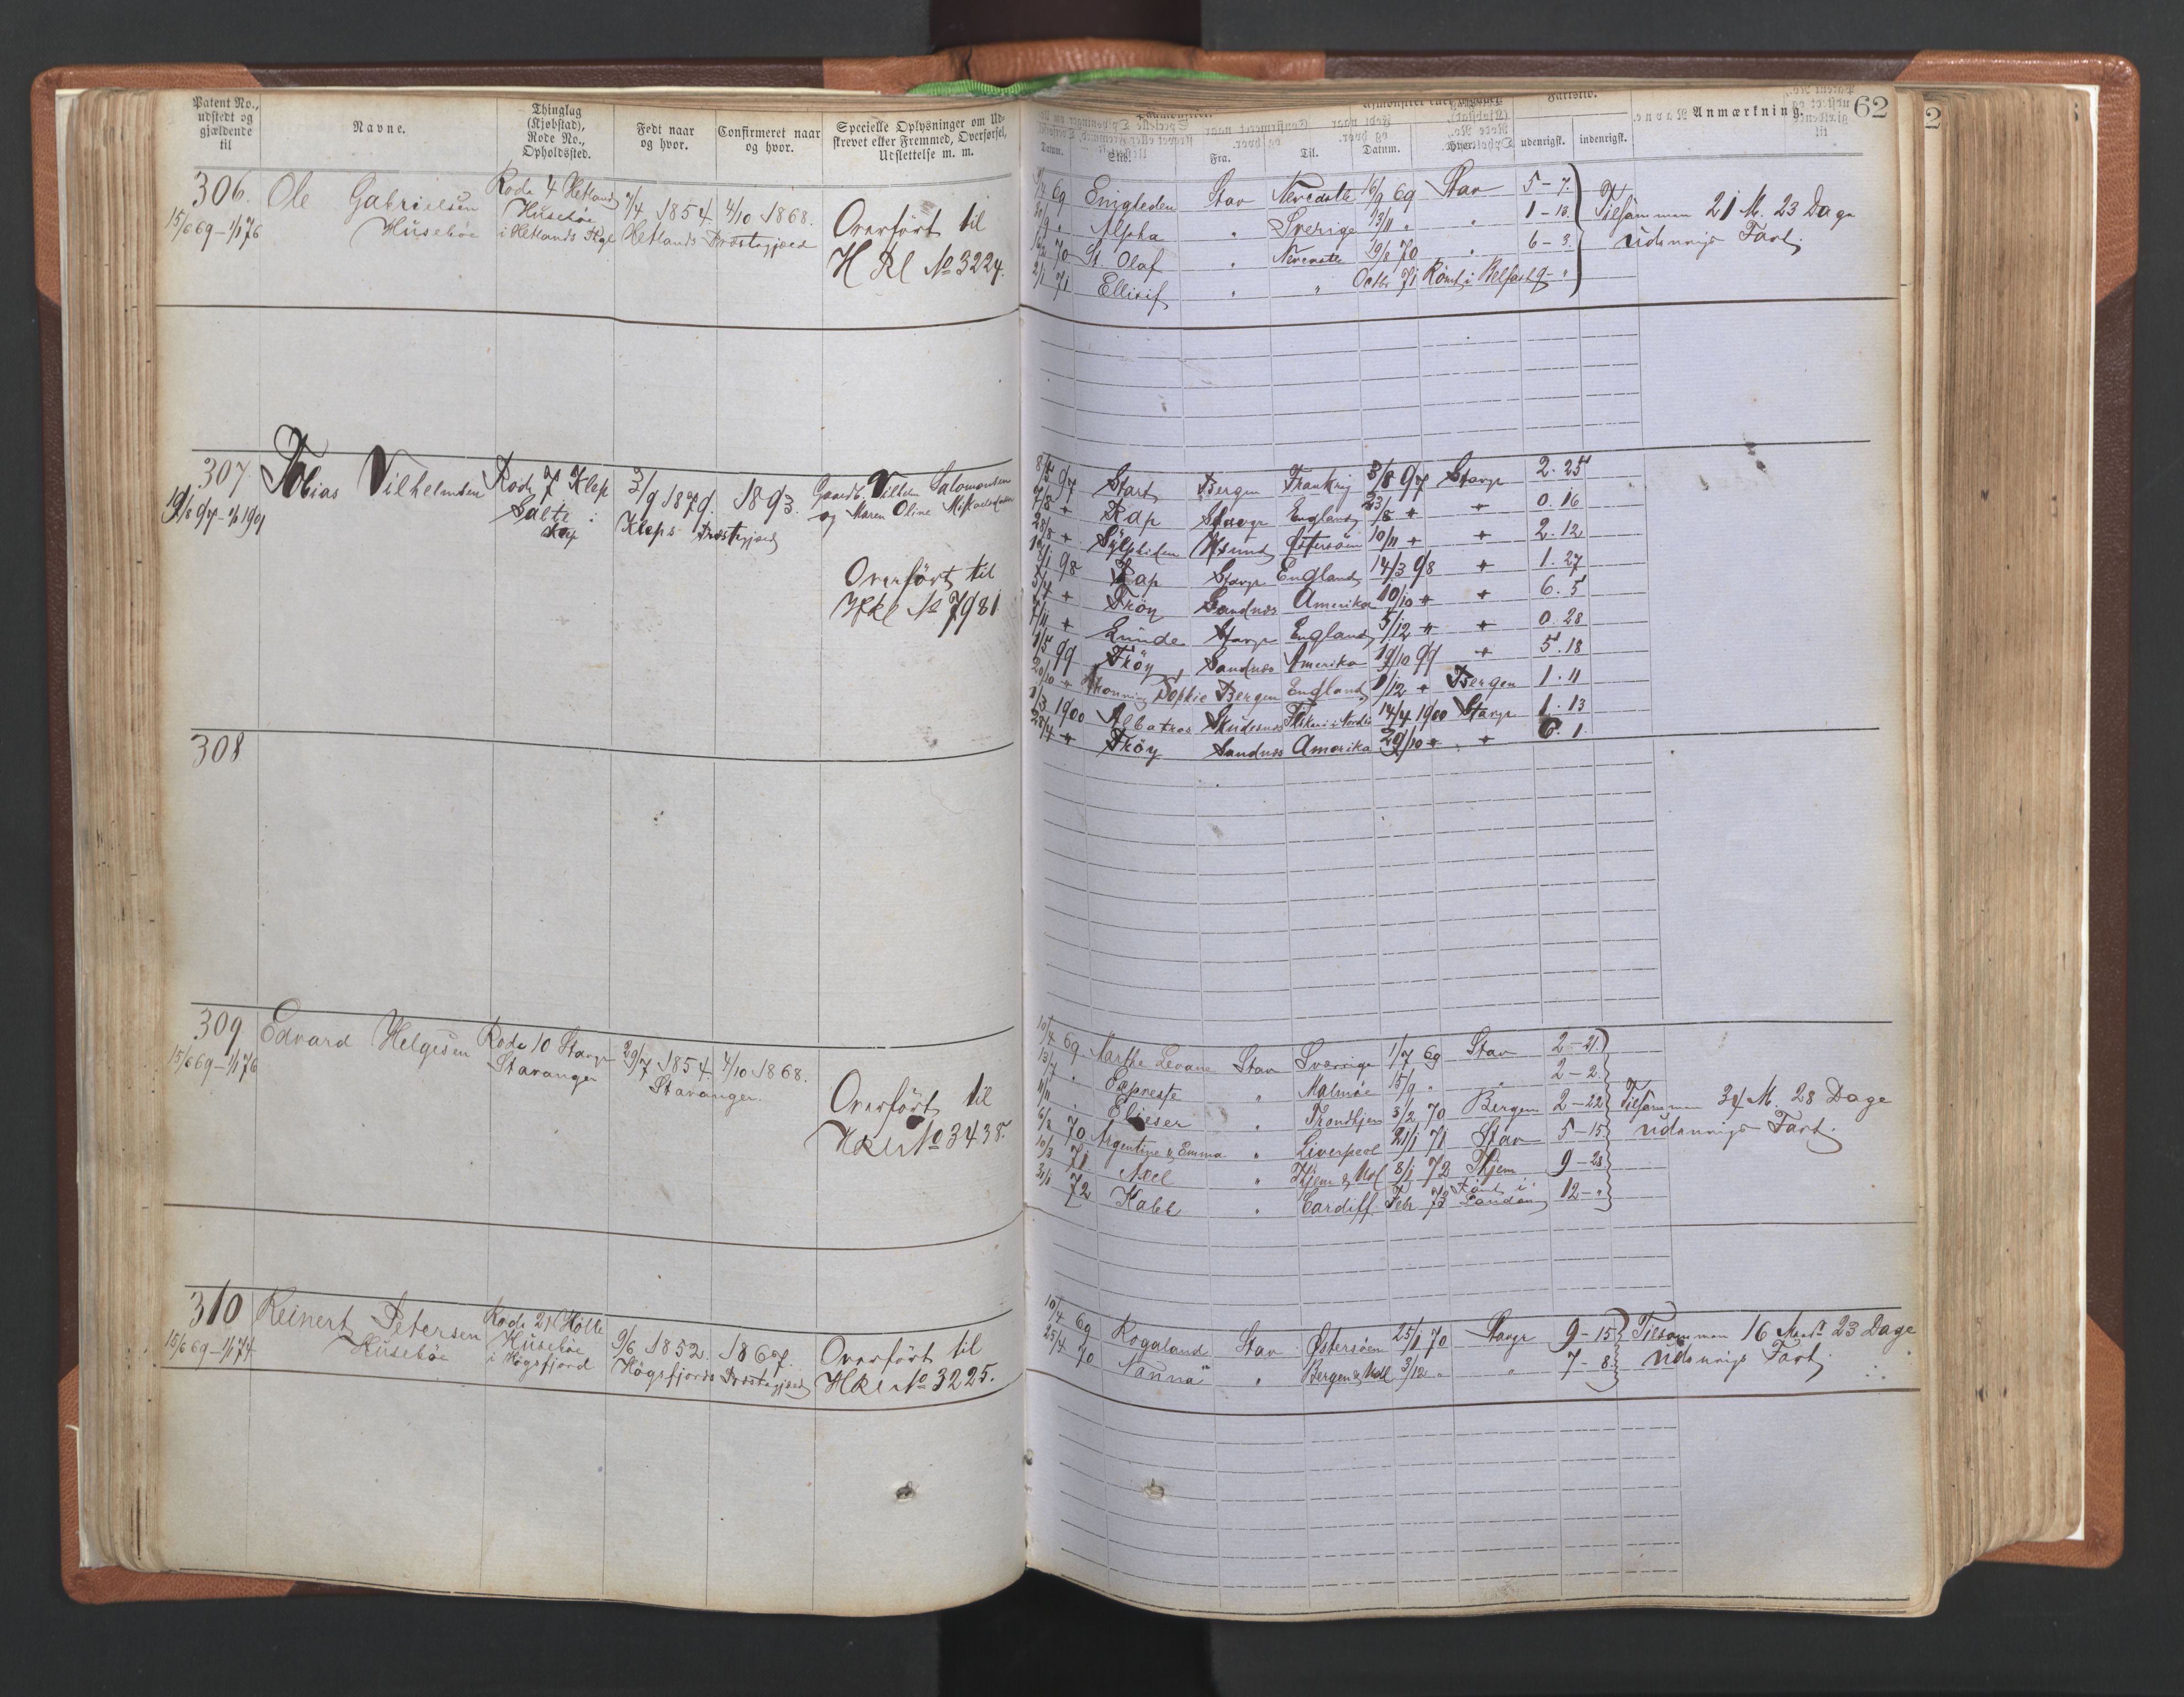 Patent No.,
udstedt og
gjældende
til
Navne.
Thinglag
(Kjøbstad),
Rode No.,
Opholdssted.
Født naar
og hvor.
Confirmeret naar
og hvor.
Specielle Oplysninger om Ud-
skrevet eller Fremmed, Overførsel,
Udslettelse m. m.
306. Ole Gabrielsen Rode 4 Hetland 1854 4/10 1868.
15/6 69 – 1/1 76 Husebøe Husebøe Hetlands Præstegjæld
i Hetlands Skgl
Overført til
H Rl No 3224.
307 Tobias Vilhelmsen Rode 7 Klep 3/9 1879. 1893. Gaardb. Vilhelm Salomonsen
Salte i Kleps Præstegjæld og Maren Oline
Klep
Overført til
Hkl No 7981
308
309 Edvard Helgesen Rode 10 Stavgr 29/7 1854. 4/10 1868.
15/6 69 – 1/1 76 Stavanger Stavanger.
Overført til
Hkl No 3438.
310 Reinert Petersen Rode 21 Holle 9/6 1852. 1867. Overført til
15/6 69 – 1/1 74 Husebøe Husebøe Høgsfjords Præstegjæld Hkl No 3225.
i Høgsfjord
Datum.
Skib.
Fra.
Til.
Datum.
Hvor.
udenrigsk.
indenrigsk.
Anmærkning.
62
2
69 Enigheden Stav Newcastle 16/9 69 Stav 5 – 7. Tilsammen 21 M. 23 Dage
Alpha " Sverige 13/11 " " 1 – 13. udenrigs Fart.
70 St Olaf " Newcastle 19/8 70 " 6 – 3.
2/1 71 Ellisif " " Octbr 71 Rømt i Belfast 9 – "
8/5 97 Start Bergen Frankrig 3/8 97 Stavgr 2. 25
7/8 + Rap Stavgr England 23/8 + + 0. 16
28/8 + Sylphiden Østersøen 10/11 + + 2. 12
98 Rap Stavgr England 14/3 98 + 1. 27
5/4 + Trøy Sandnes Amerika 10/10 + + 6. 5
7/11 + Lunde Stavgr England 5/12 " + 0. 28
1/5 99 Trøy Sandnes Amerika 19/10 99 + 5. 18
20/10 + Dronning Sophie Bergen England 1/12 + Bergen 1. 11
1/3 1900 Albatros Skudesnes Fiskeri i Nords 14/4 1900 Stavgr 1. 13
28/4 + Trøy Sandnes Amerika 29/10 + + 6. 1.
10/4 69 Marthe Levane Stav Sverrige 1/7 69 Stav 2 – 21.
13/7 " Expresse " Malmøe 15/9 " " 2 – 2.
1/11 " Elieser " Trondhjem 3/2 70 Bergen 2 – 22 Tilsammen 34 M. 28 Dage
6/8 70 Argentine & Emma " Liverpool 21/1 71 Stav 5 – 15 udenrigs Fart.
10/3 71 Axel " Thjem & Udl 8/1 72 Thjem 9 – 28
31/1 72 Kaleb " Cardiff Febr 73 Rømt i London 12 – "
10/4 69 Rogaland Stav Østersøen 25/1 70 Stavgr 9 – 15 Tilsammen 16 Maan. 23 Dage
25/4 70 Nanna " Bergen & Udl 3/12 " " 7 – 8. udenrigs Fart.